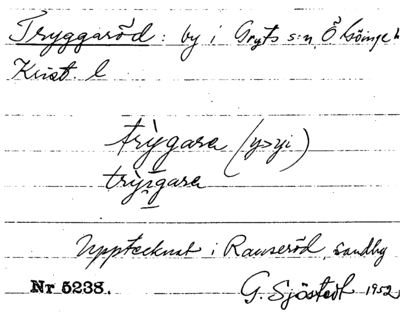 Tryggaröd: by i Gryts s:n, Ö Göinge h
Krist. l
trỳgara (y>yi)
trỳigara
Upptecknat i Ranseröd, sandby
Nr 5238. G. Sjöstedt 1952